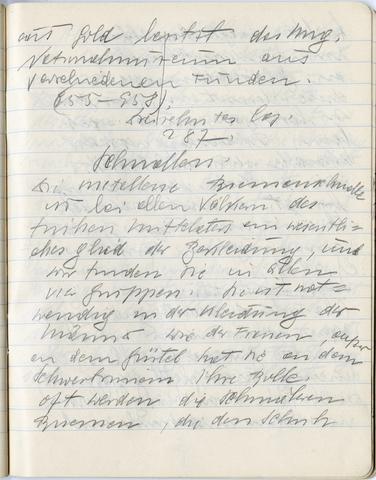 aus Gold besitzt das Ung.
Nationalmuseum aus
verschiedenen Funden.
(655-658).
Dreizehntes Cap.
287.
Schnallen.
Die metallene Riemenschnalle
ist bei allen Völkern des
frühen Mittelalters ein wesentli-
ches Glied der Bekleidung, und
wir finden sie in allen
vier Gruppen. Sie ist not-
wendig in der Kleidung der
Männer wie der Frauen, außer
an dem Gürtel hat sie an dem
Schwertriemen ihre Rolle.
oft werden die schmäleren
Riemen, die den Schuh